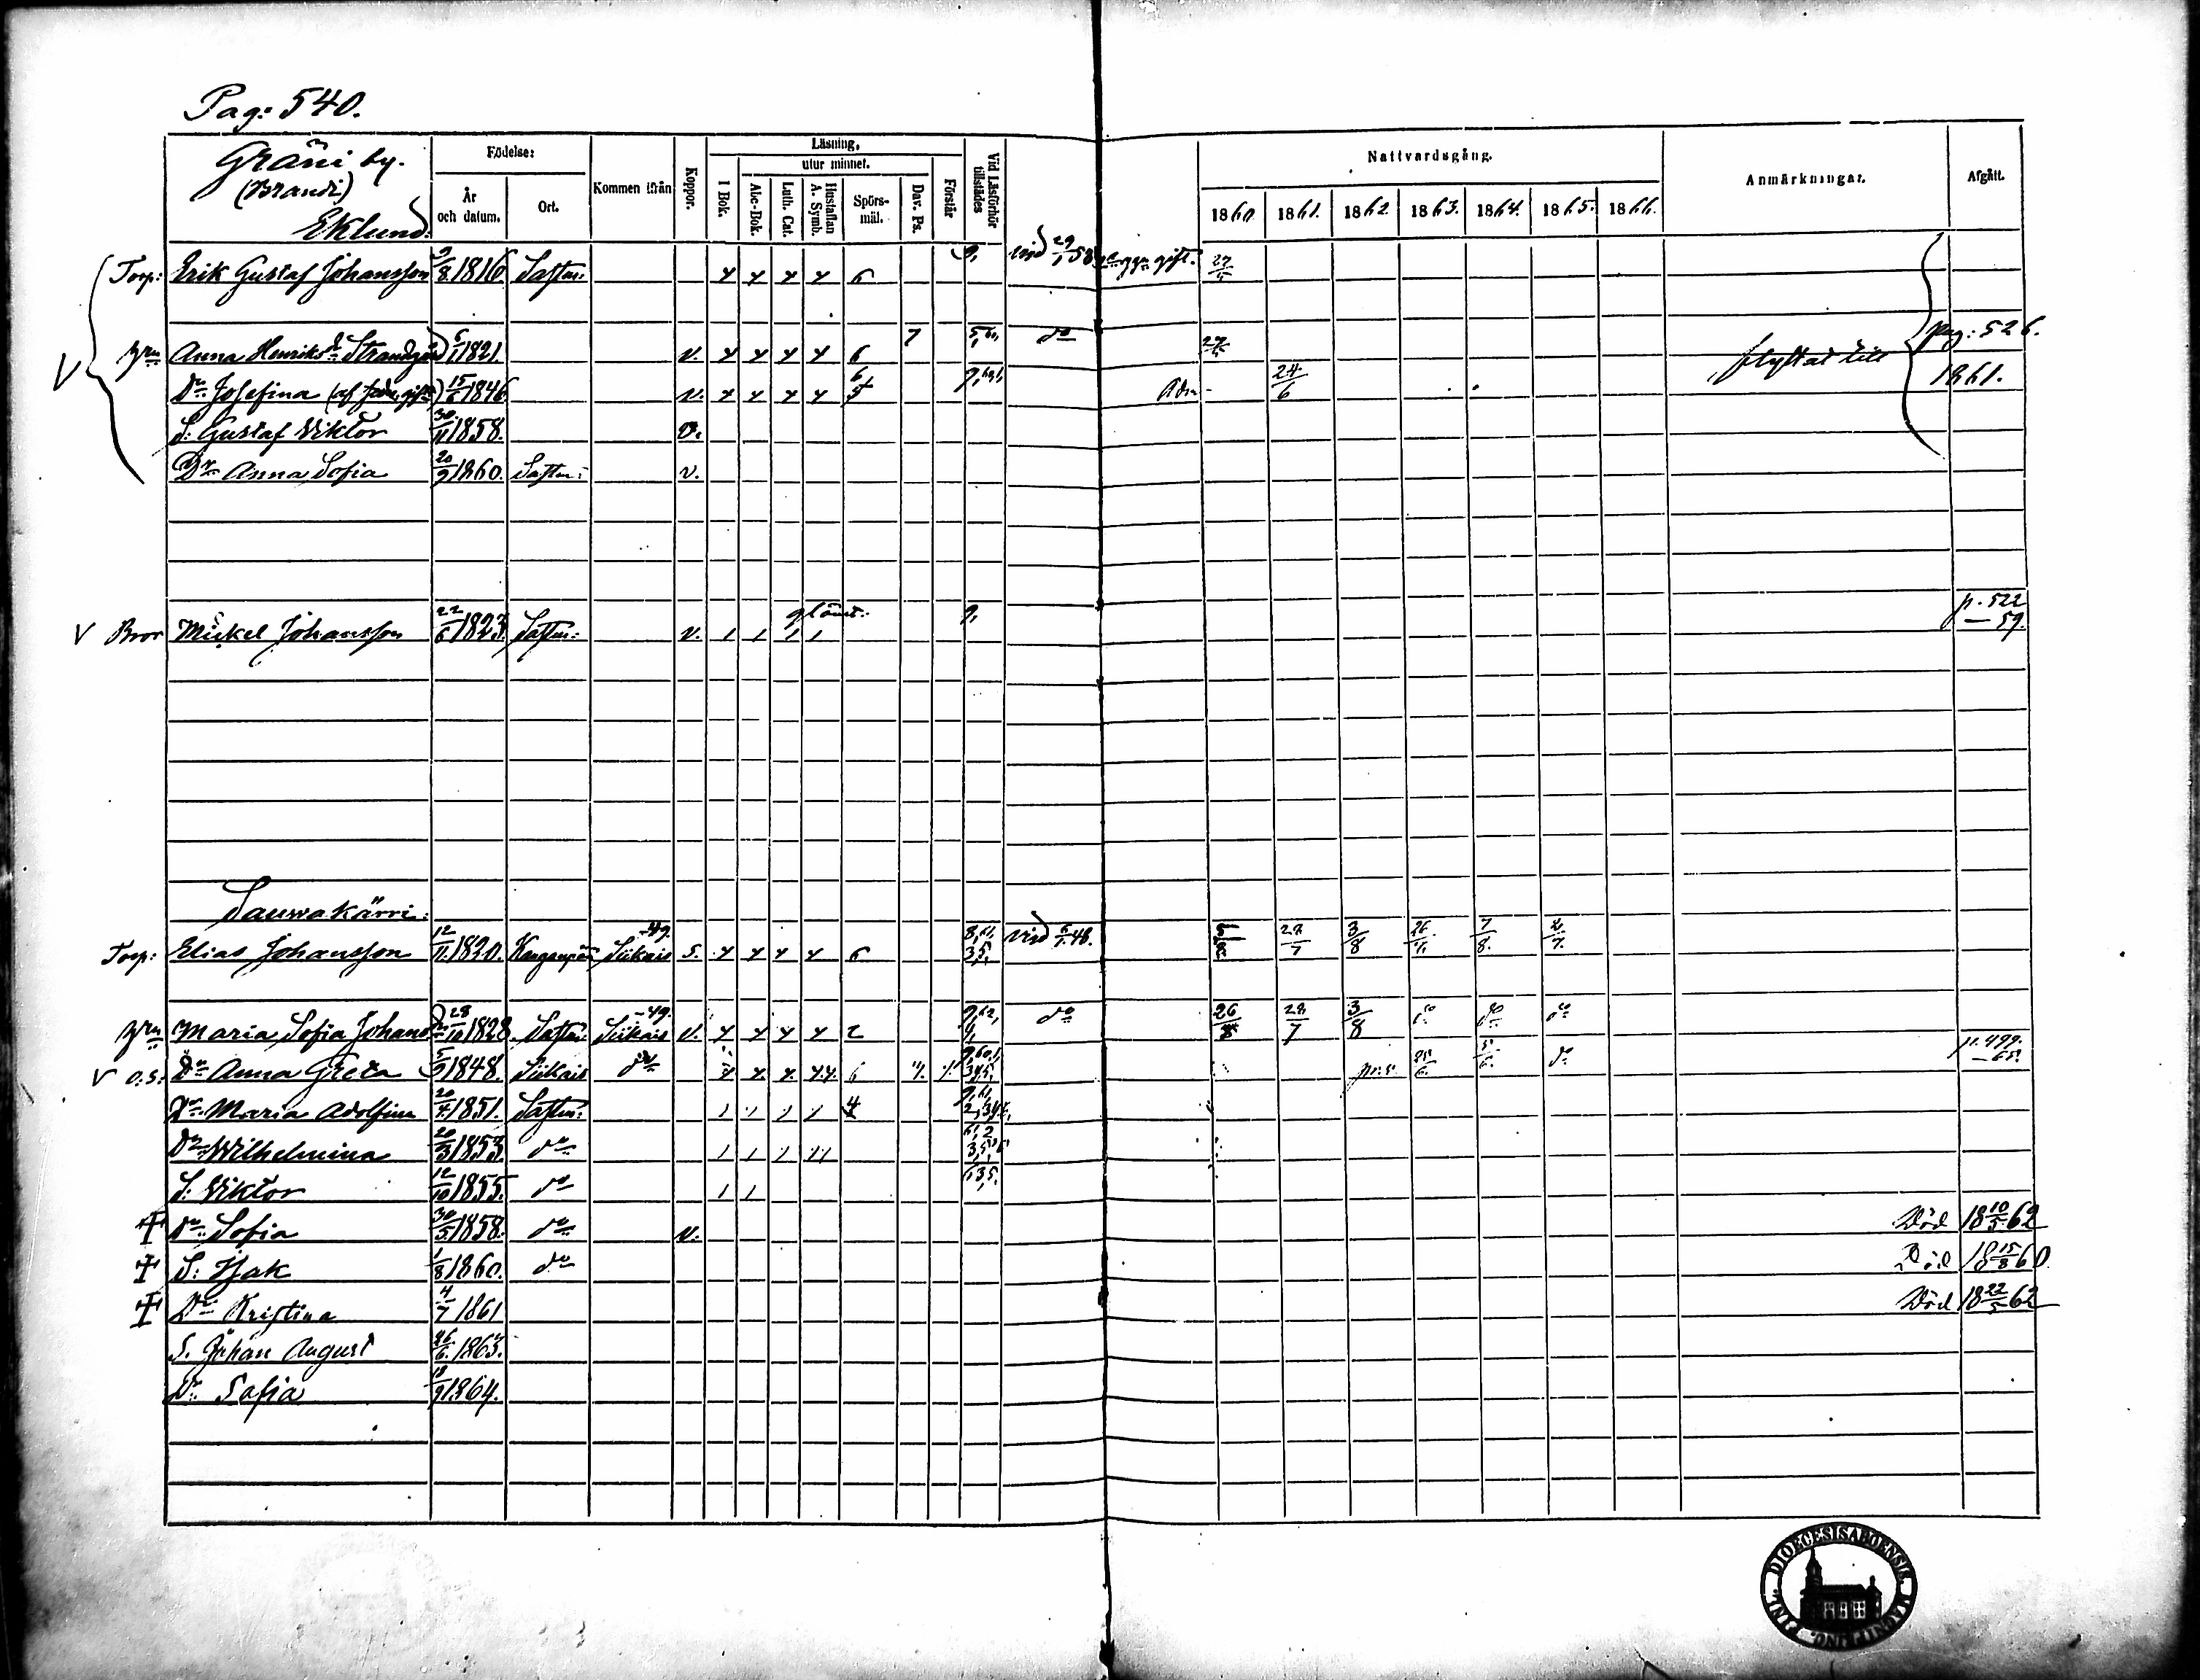 Pag: 540.
Gräni by.
(Brandi)
Eklund.
Födelse:
År och datum.
Ort.
Kommen ifrån
Koppor.
Läsning,
I Bok.
utur minnet.
Abc-Bok.
Luth. Cat.
Hustaflan A. Symb.
Spörs-mål.
Dav. Ps.
Förstår
Vid Läsförhör tillstädes
Nattvardsgång.
1860. 1861. 1862. 1863. 1864. 1865. 1866.
Anmärkningar.
Afgått.
Torp: Erik Gustaf Johansson 9/8 1816. Sastm: 4 4 4 4 6 vigd 29/1 58 gift. 27/5
Hru Anna Henriksdr Strandgård 6/1 1821. v. 4 4 4 4 6 7 do 27/5 flyttat till pag: 526.
Dr Josefina 15/6 1846 v. 4 4 4 4 6 5 Adm 24/6 1861.
S: Gustaf Viktor 30/11 1858. v.
Dr Anna Sofia 20/9 1860. Sastm: v.
V Bror Mickel Johansson 22/6 1823. Sastm: v. glömt: p. 522 — 59.
Sauwakärri:
Torp: Elias Johansson 12/11 1820. Kangaspää Siikais -49. S. 4 4 4 4 6 vigd 6/1 48. 28/7 3/8 26/7 7/8 2/7
Hru Maria Sofia Johansdr 28/10 1828. Sastm: Siikais -49. v. 4 4 4 4 2 do 26/8 28/7 3/8 do do do
V o.s. Dr Anna Greta 5/9 1848. Siikais do 6 do p. 499. — 65.
Dr Maria Adolfina 20/4 1851. Sastm: 4
Dr Wilhelmina 20/3 1853. do
S: Viktor 12/10 1855. do
Dr Sofia 30/5 1858. do v. Död 18 10/5 62
S: Isak 1/8 1860. do Död 18 15/8 60.
Dr Kristina 4/7 1861 Död 18 22/5 62
S. Johan August 26/6 1863.
Dr Sofia 18/9 1864.
FINL. DIOECESIS ABOENSIS. MAGNI PRINC.